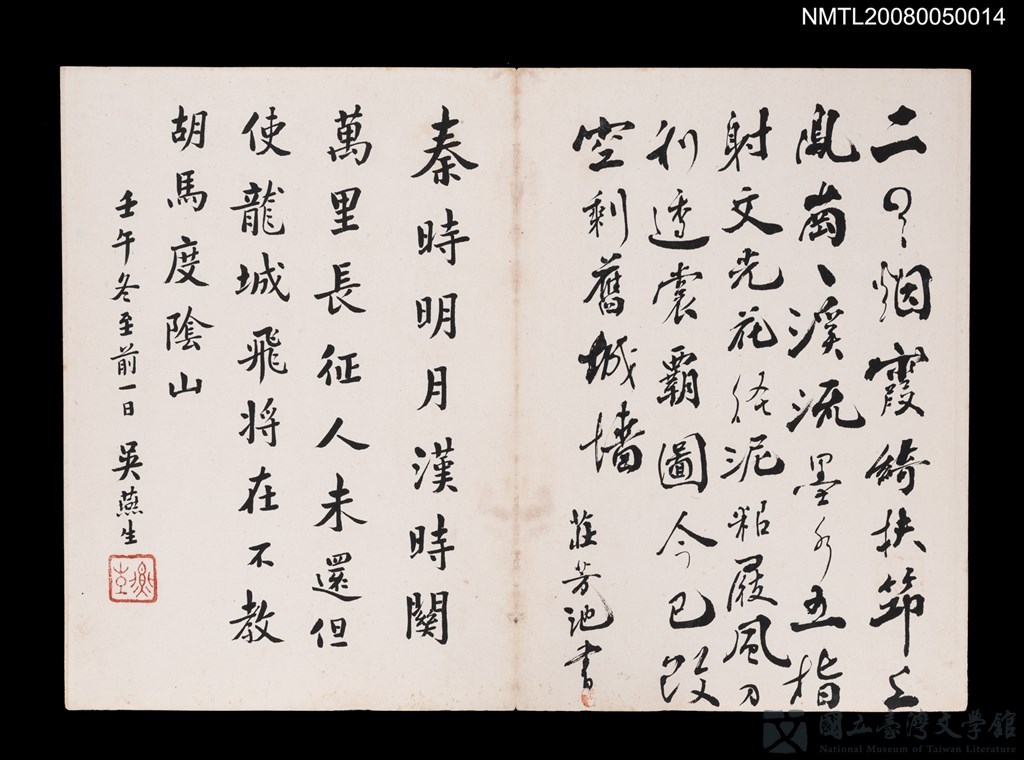 NMTL20080050014
二烟霞綺扶筇上
鳳崗、溪流墨水五指
射文光花径泥粘屐風刀
利透裳霸圖今已改
空剩舊城墻
莊芳池書
秦時明月漢時關
萬里長征人未還但
使龍城飛将在不教
胡馬度陰山
壬午冬至前一日 吳燕生
國立臺灣文學館
National Museum of Taiwan Literature